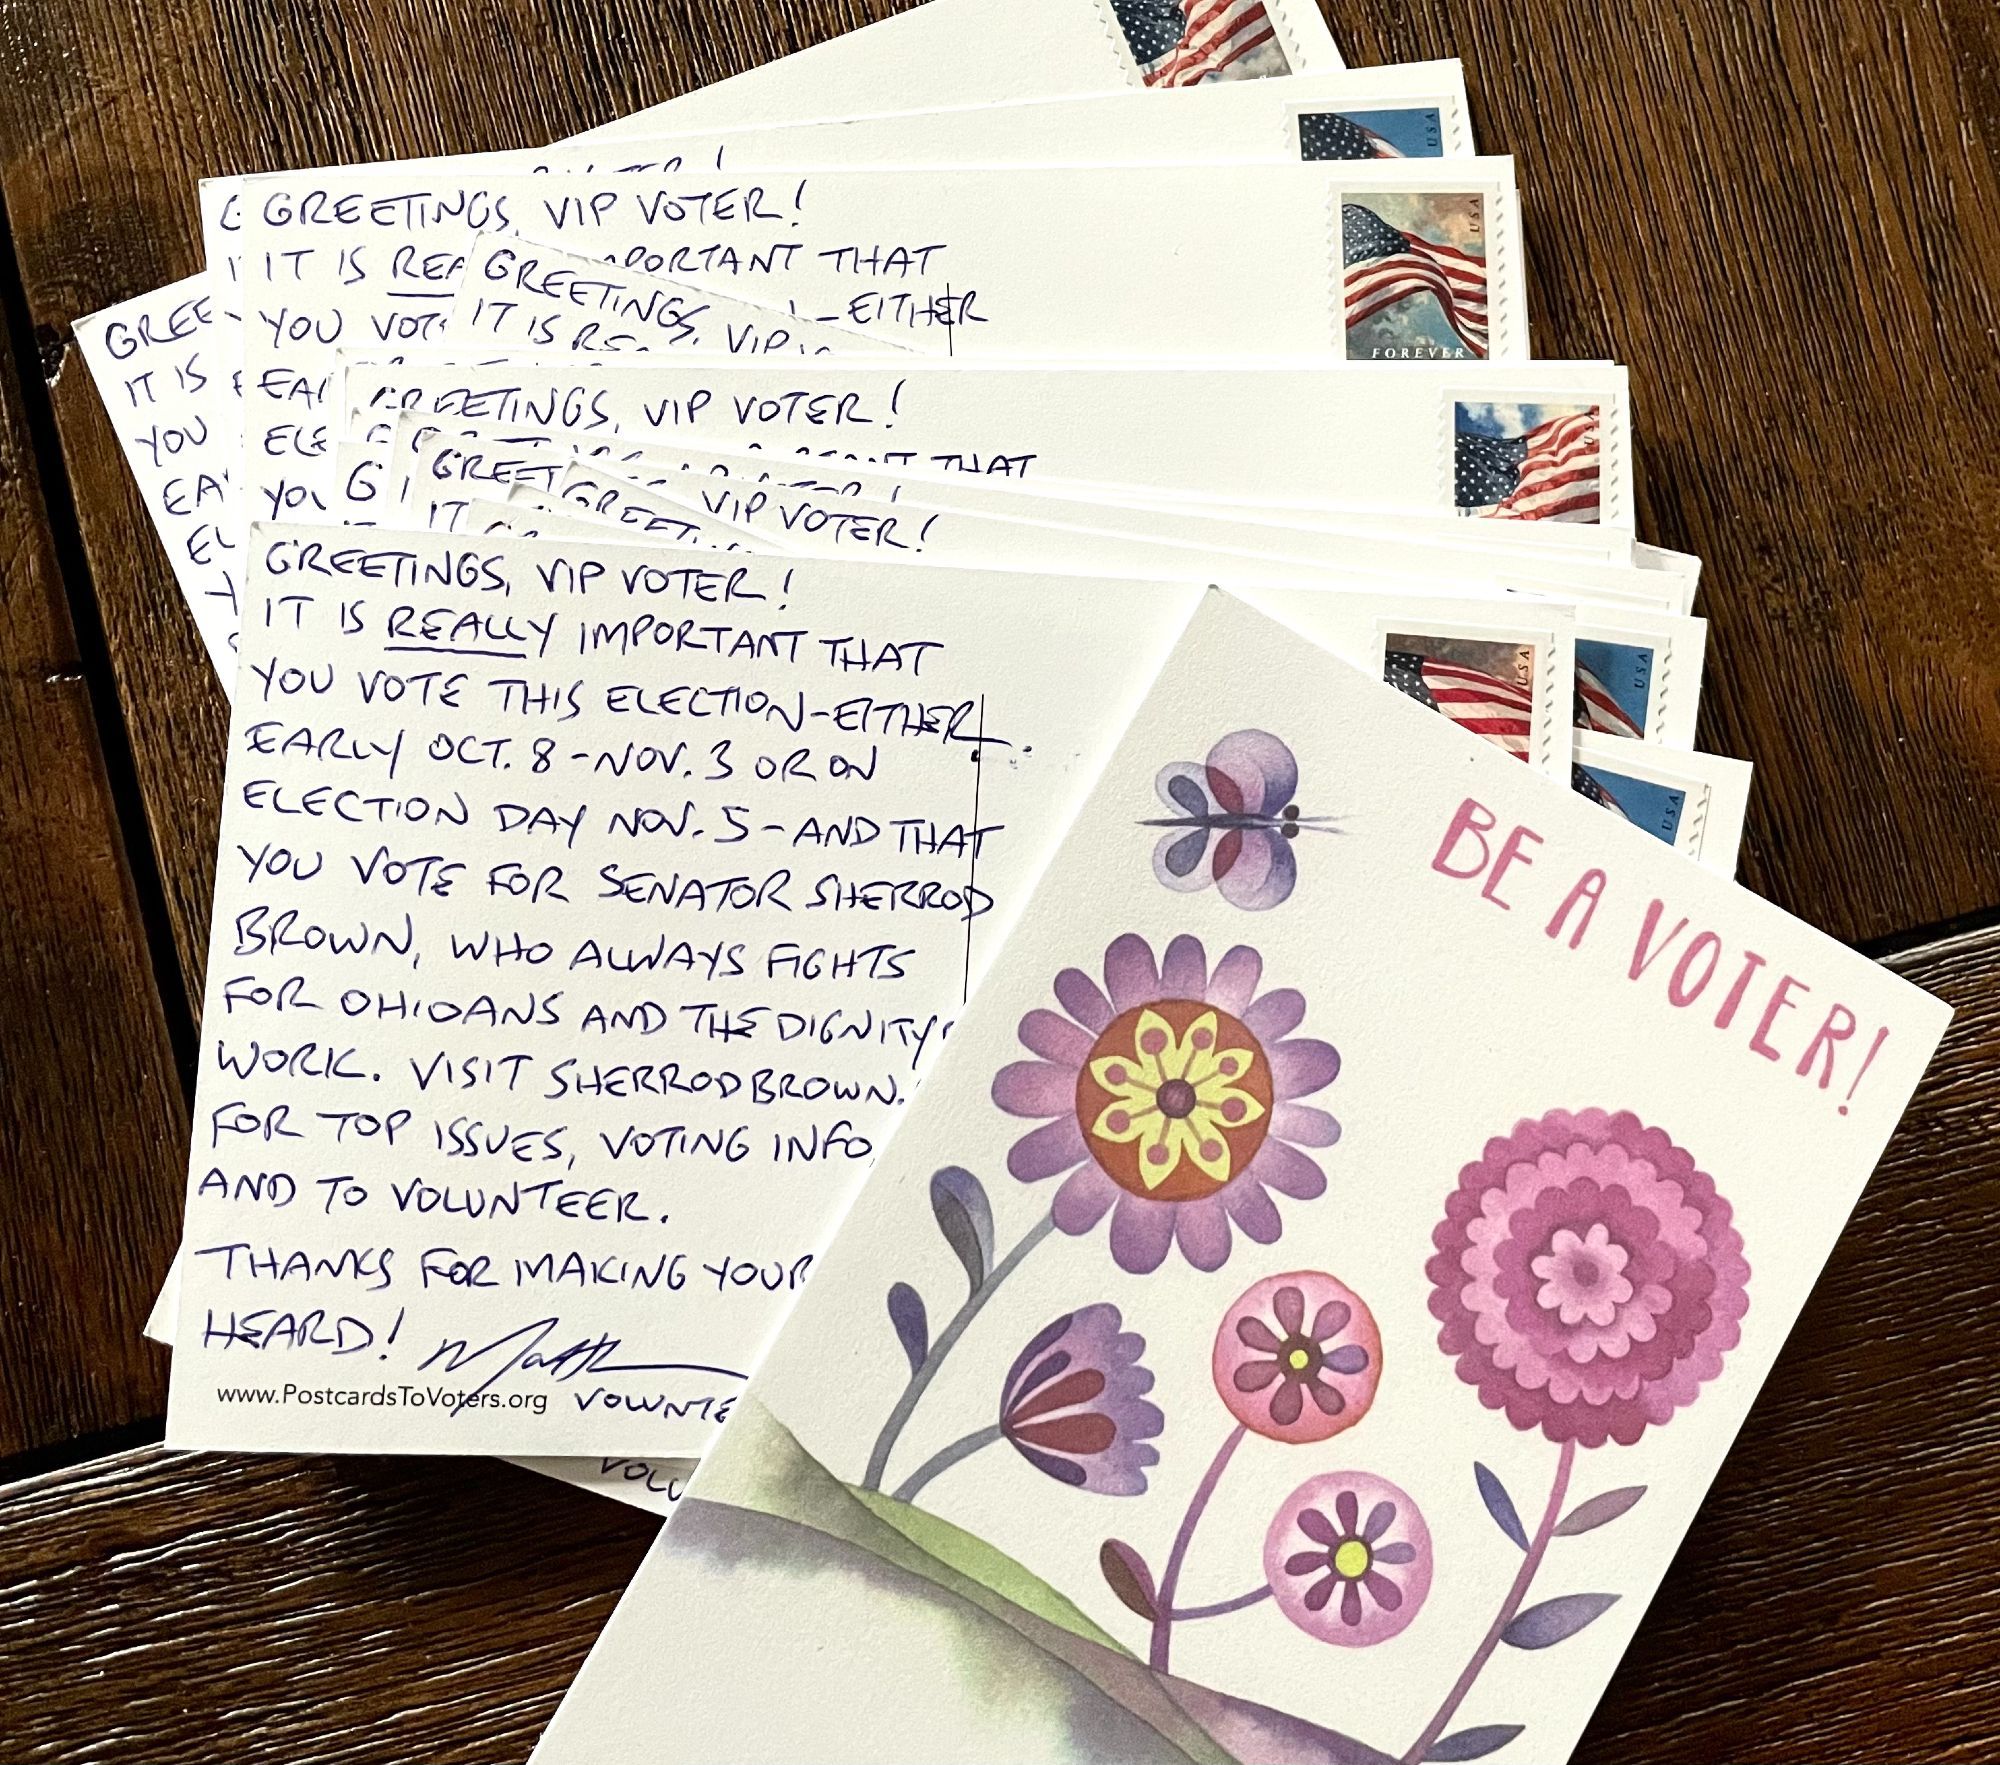 GREETINGS, VIP VOTER!
IT IS
PORTANT THAT
YOU
-EITHER
GREETINGS, VIP
IT IS
IT IS
YOU
USA
FOREVER
USA
USA
GREETINGS, VIP VOTER!
THAT
USA
VIP VOTER!
GREETINGS, VIP VOTER!
IT IS REALLY IMPORTANT THAT
YOU VOTE THIS ELECTION-EITHER
EARLY OCT. 8-NOV. 3 OR ON
ELECTION DAY NOV. 5-AND THAT
YOU VOTE FOR SENATOR SHERROD
BROWN, WHO ALWAYS FIGHTS
FOR OHIOANS AND THE DIGNITY
WORK. VISIT SHERRODBROWN.
FOR TOP ISSUES, VOTING INFO
AND TO VOLUNTEER.
THANKS FOR MAKING YOUR
HEARD!
www.PostcardsToVoters.org VOLUNTE
VOLU
USA
USA
USA
BE A VOTER!